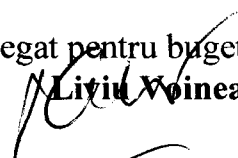 egat pentru buget
Liviu Voinea